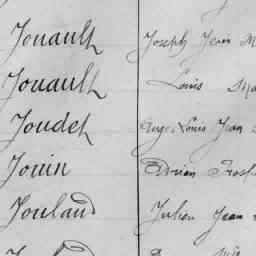 Jouault Joseph Jean M
Jouault Louis
Joudet Auge Louis Jean
Jouin Adrien Prosp
Joulaud Julien Jean